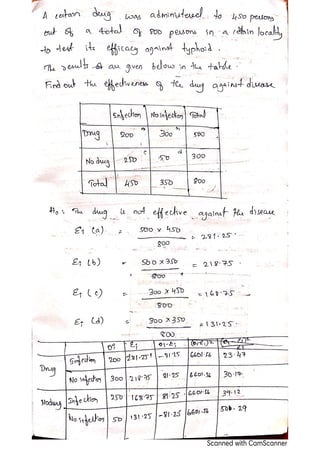 A certain drug was administered to 450 persons
out of a total of 800 persons in a certain locality
to test its efficacy against typhoid.
The results are given below in the table.
Find out the effectiveness of the drug against disease
Infection No infection Total
Drug 200 a 300 b 500
No drug 250 c 50 d 300
Total 450 350 800
H₀: The drug is not effective against the disease
Ei (a) = 500 x 450 / 800 = 281.25
Ei (b) = 500 x 350 / 800 = 218.75
Ei (c) = 300 x 450 / 800 = 168.75
Ei (d) = 300 x 350 / 800 = 131.25
Oi Ei Oi-Ei (Oi-Ei)²
Drug Infection 200 281.25 -81.25 6601.56 23.47
No infection 300 218.75 81.25 6601.56 30.17
No drug Infection 250 168.75 81.25 6601.56 39.12
No infection 50 131.25 -81.25 6601.56 50.29
Scanned with CamScanner